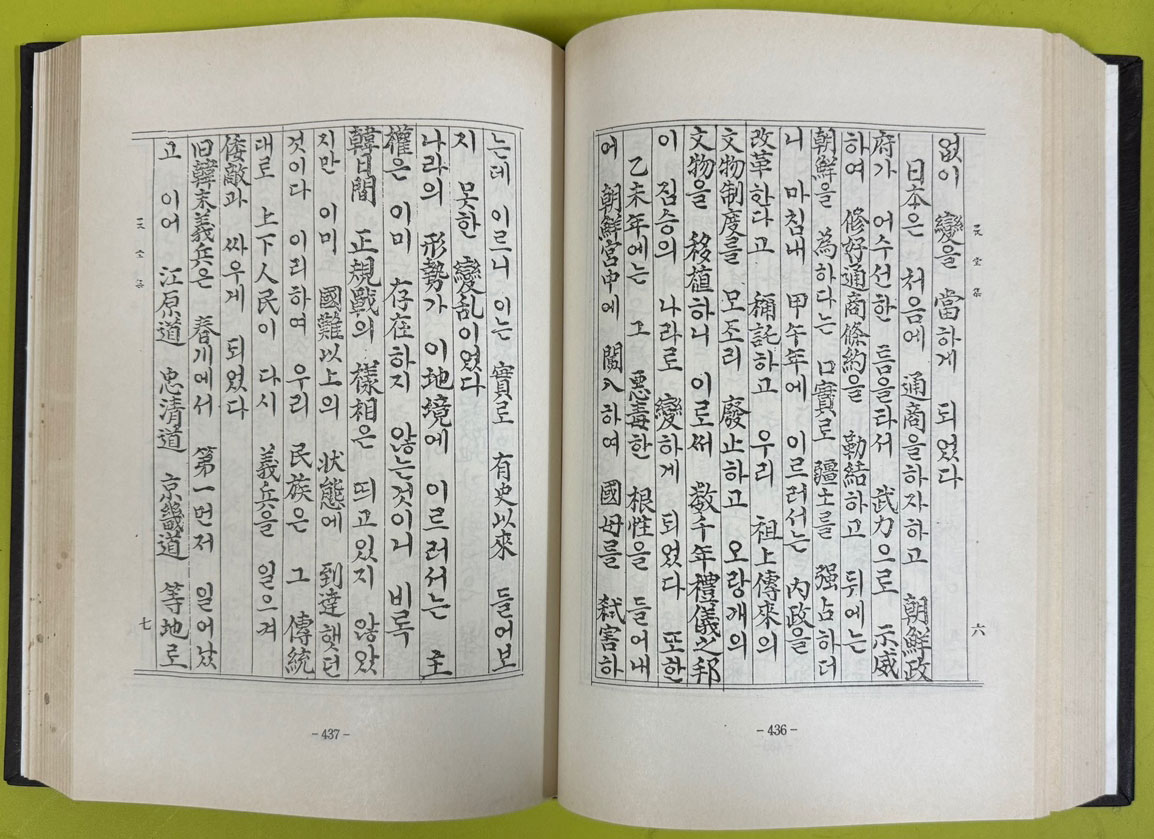 六
없이 變을 當하게 되었다
日本은 처음에 通商을하자하고 朝鮮政
府가 어수선한 틈을타서 武力으로 示威
하여 修好通商條約을 勒結하고 뒤에는
朝鮮을 為하다는 口實로 疆土를 强占하더
니 마침내 甲午年에 이르러서는 内政을
改革한다고 稱託하고 우리 祖上傳來의
文物制度를 모조리 廢止하고 오랑캐의
文物을 移植하니 이로써 数千年禮儀之邦
이 짐승의 나라로 變하게 되었다 또한
乙未年에는 그 悪毒한 根性을 들어내
어 朝鮮宮中에 闖入하여 國母를 弑害하
- 436 -
는데 이르니 이는 實로 有史以來 들어보
지 못한 變乱이었다
나라의 形勢가 이地境에 이르러서는 主
權은 이미 存在하지 않는것이니 비록
韓日間 正規戰의 樣相은 띠고있지 않았
지만 이미 國難以上의 状態에 到達했던
것이다 이리하여 우리 民族은 그 傳統
대로 上下人民이 다시 義兵을 일으켜
倭敵과 싸우게 되었다
旧韓末義兵은 春川에서 第一먼저 일어났
고 이어 江原道 忠清道 京畿道 等地로
七
- 437 -